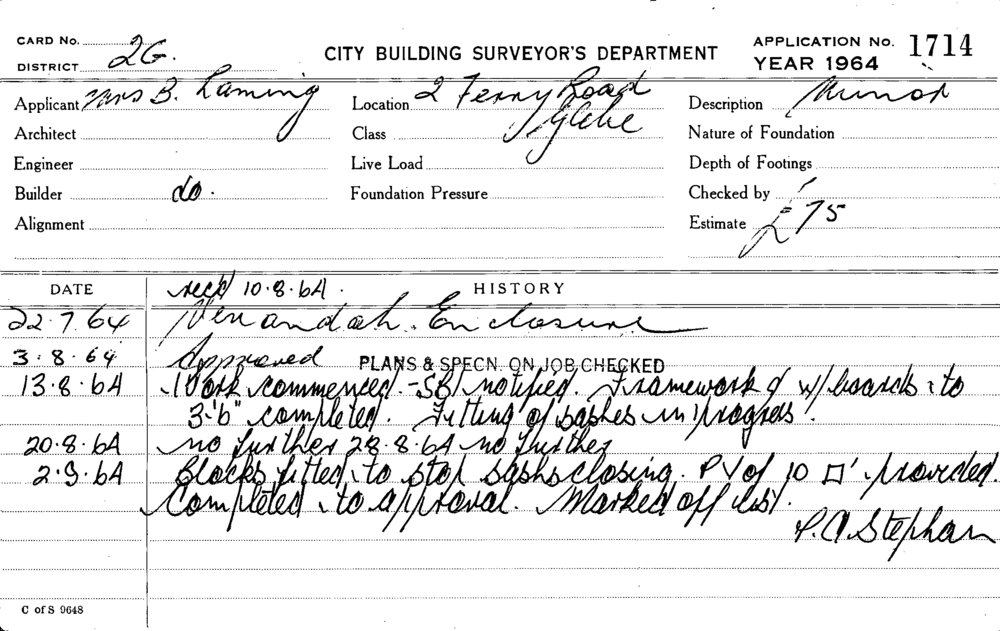 CARD No. 2G.
DISTRICT
CITY BUILDING SURVEYOR'S DEPARTMENT
APPLICATION No. 1714
YEAR 1964
Applicant Mrs B. Laming
Location 2 Ferry Road
Glebe
Description Minor
Architect
Class
Nature of Foundation
Engineer
Live Load
Depth of Footings
Builder do.
Foundation Pressure
Checked by
Alignment
Estimate £75
DATE
recd 10.8.64.
HISTORY
22.7.64 Verandah Enclosure
3.8.64 Approved PLANS & SPECN. ON JOB CHECKED
13.8.64 Work commenced - SBI notified. Framework & w/boards to
3'-6" completed. Fitting of sashes in progress.
20.8.64 no further 28.8.64 no further
2.9.64 Blocks fitted to stop sashs closing. P V of 10 □' provided.
Completed to approval. Marked off list.
P.A. Stephan
C of S 9648